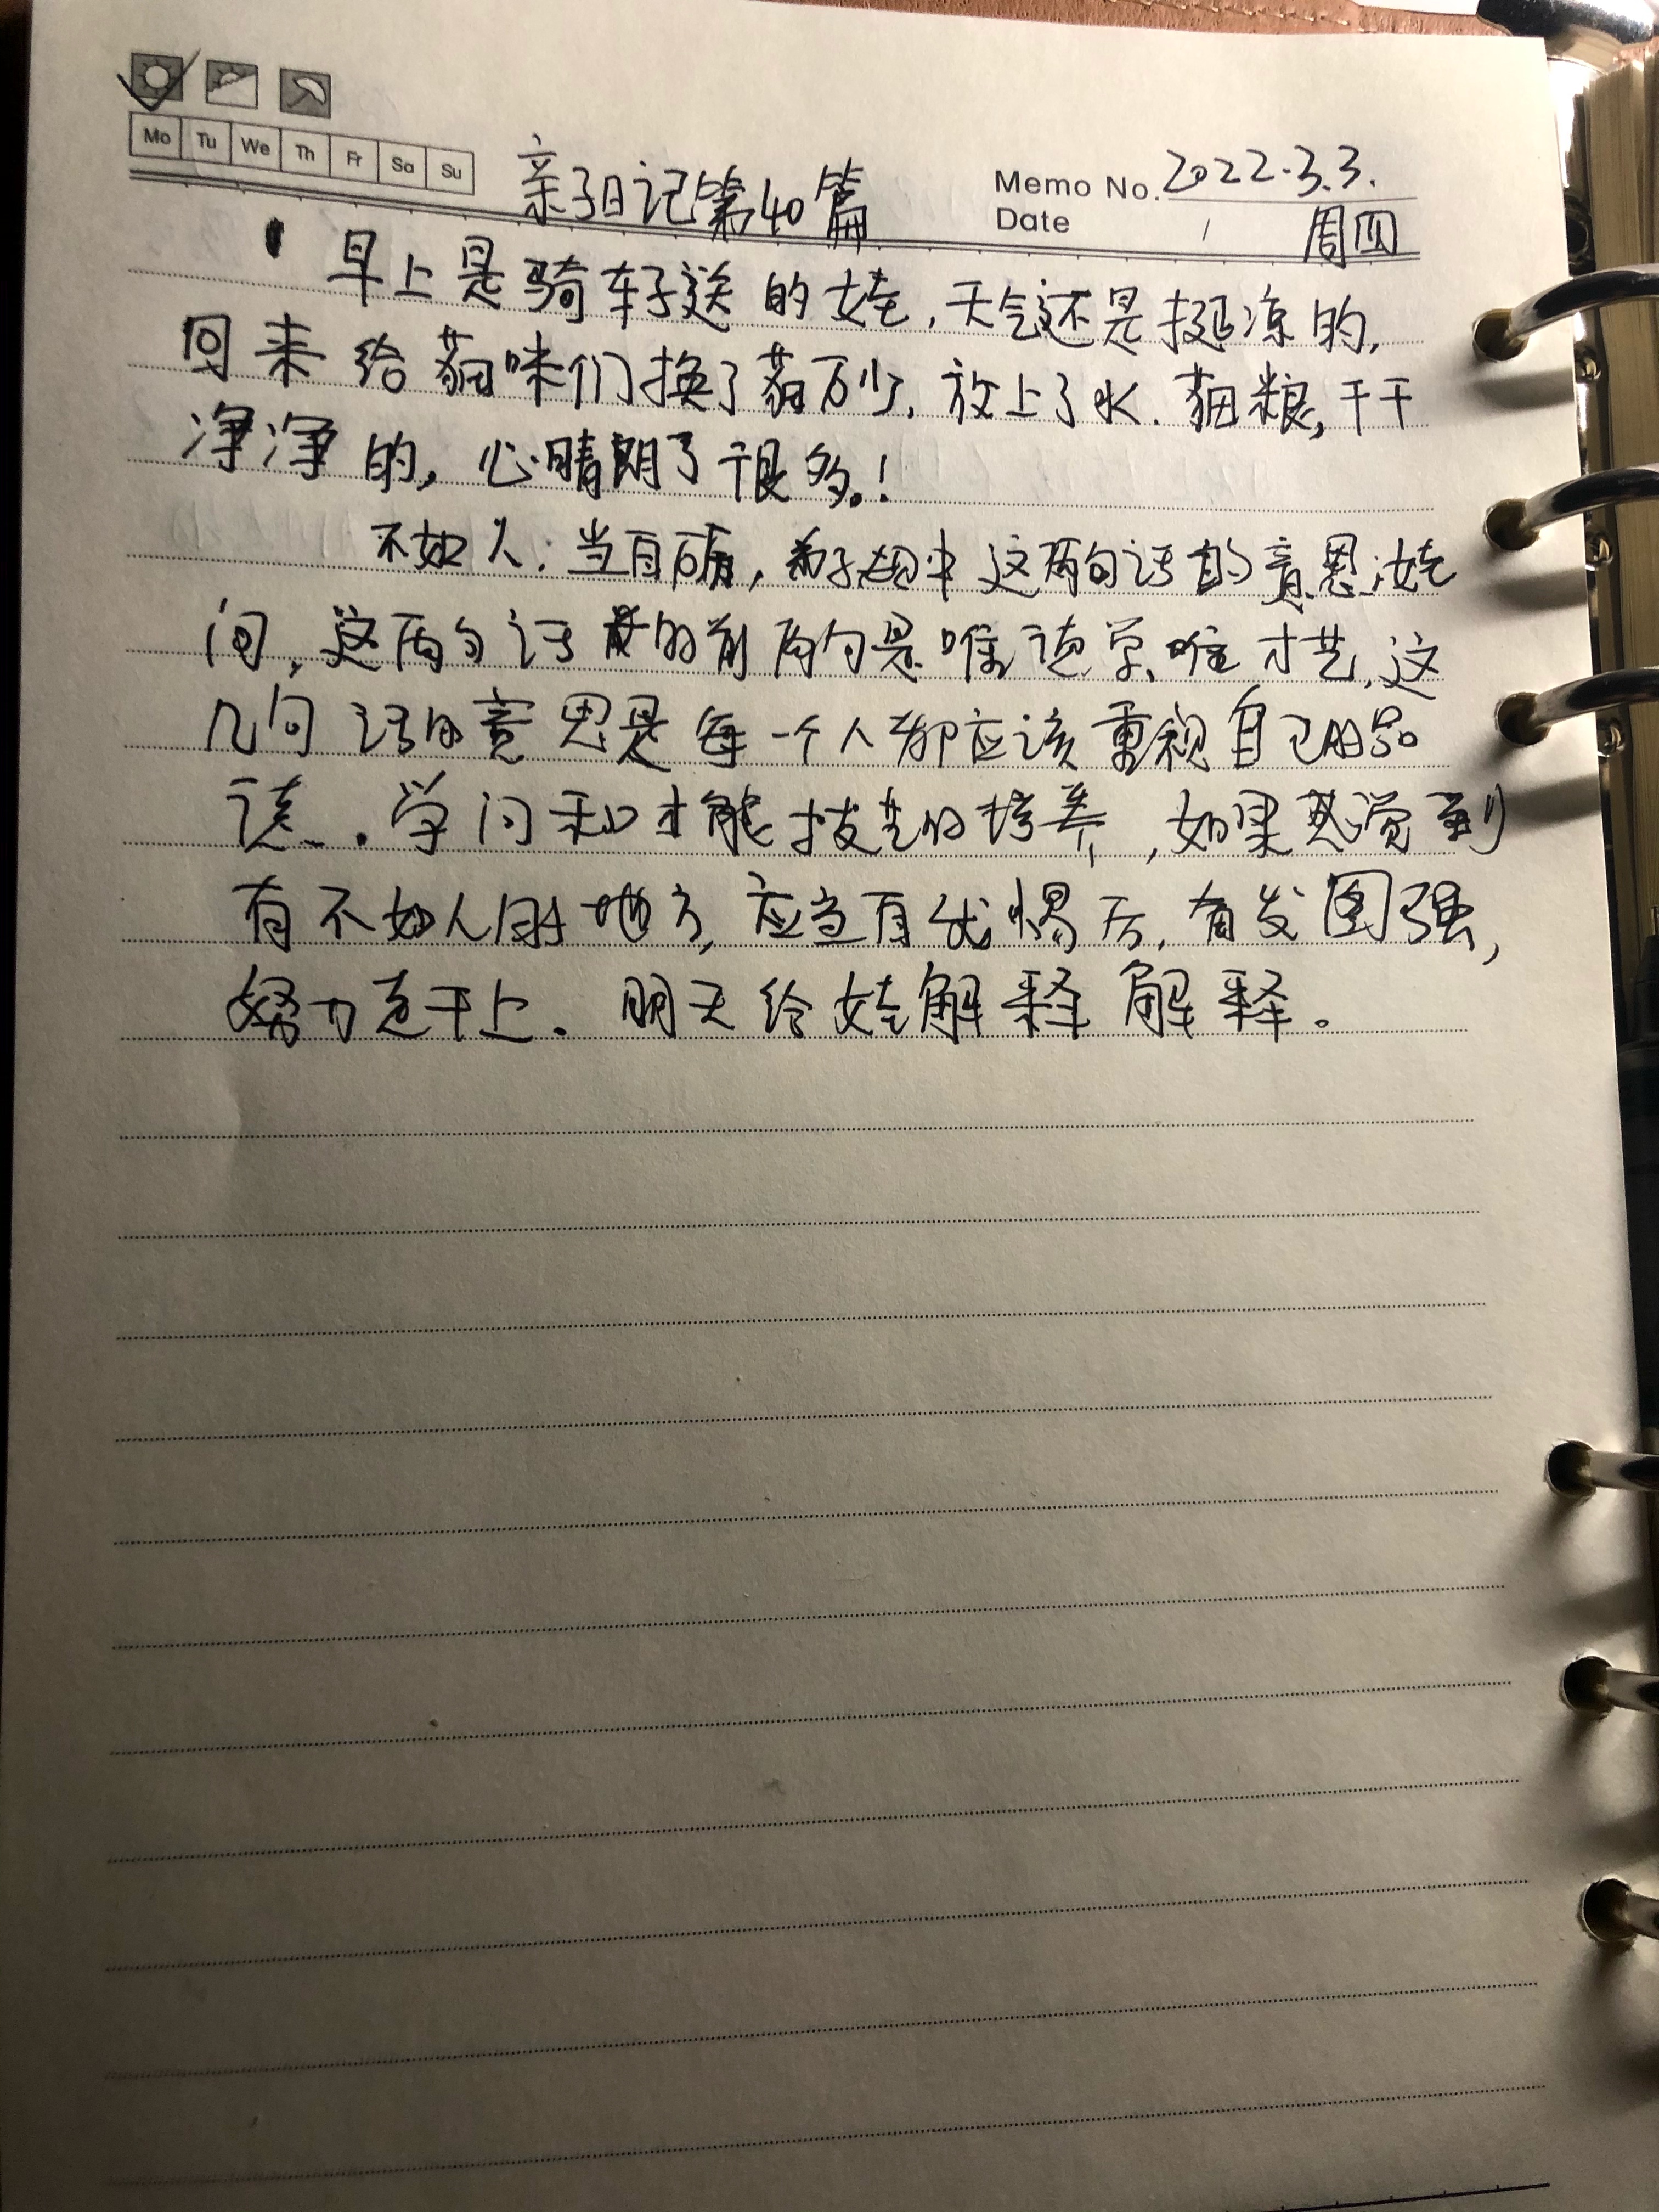 Mo Tu We Th Fr Sa Su
亲子日记第40篇
Memo No. 2022.3.3.
Date / 周四
早上是骑车子送的娃,天气还是挺凉的,
回来给猫咪们换了猫砂,放上了水.猫粮,干干
净净的,心晴朗了很多。!
不如人.当自砺,弟子规中这两句话的意思,娃
问,这两句话的前两句是唯德学,唯才艺,这
几句话的意思是每一个人都应该重视自己的品
德.学问和才能技艺的培养,如果感觉到
有不如人的地方,应当有忧惕, 奋发图强,
努力克于上.明天给娃解释解释。